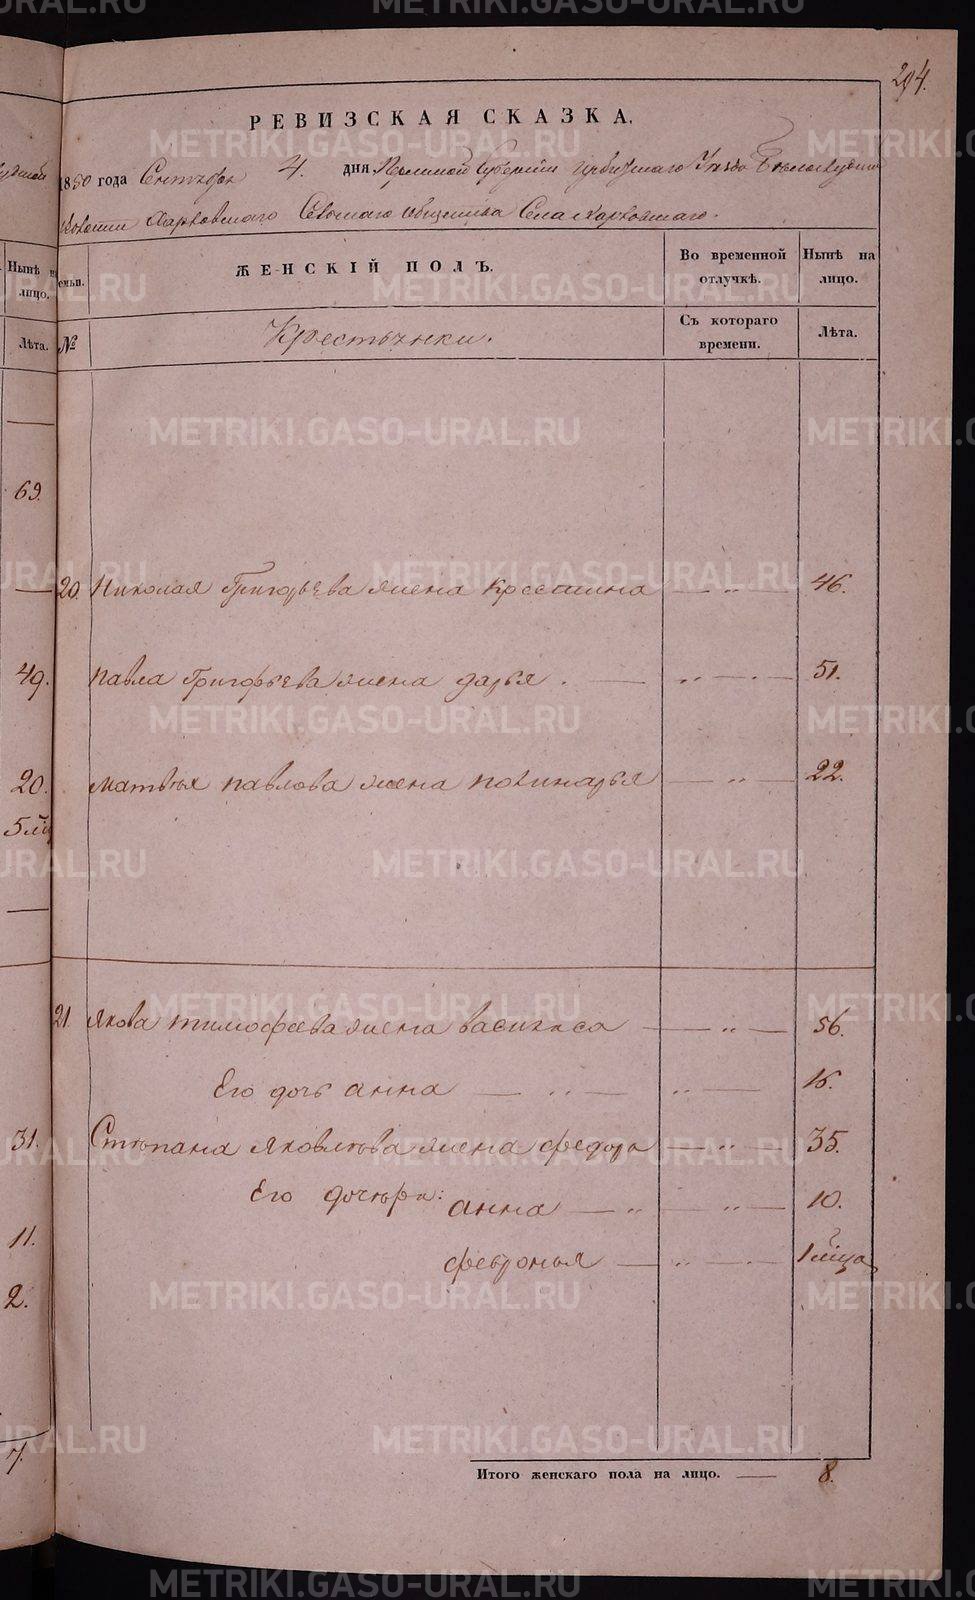 294.
РЕВИЗСКАЯ СКАЗКА.
1850 года Сентября 4. дня Пермской Губернии Ирбитскаго Уезда
Харловскаго Сельскаго общества Села Харловскаго.
Нынѣ на лицо.
Лѣта.
69.
49.
20.
31.
11.
2.
7.
семьи.
№
ЖЕНСКІЙ ПОЛЪ.
Во временной отлучкѣ.
Нынѣ на лицо.
Крестьянки.
Съ котораго времени.
Лѣта.
20. Николая Григорьева жена Крестина — „ — 46.
Павла Григорьева жена дарья. — „ — 51.
Матвѣя павлова жена — „ — 22.
21. Якова тимофеева жена василиса — „ — 56.
Его дочь анна — „ — „ — 16.
Стѣпана Яковлѣва жена федора — „ — 35.
Его дочѣри: анна — „ — „ — 10.
февронья — „ — 1 мѣца
Итого женскаго пола на лицо. — 8.
METRIKI.GASO-URAL.RU